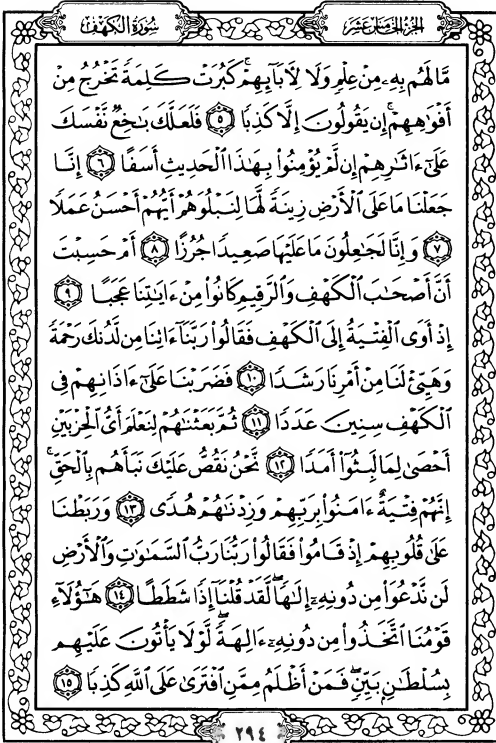 الجزء الخامس عشر
سورة الكهف
مَّا لَهُم بِهِۦ مِنْ عِلْمٍ وَلَا لِأٓبَآئِهِمْ ۚ كَبُرَتْ كَلِمَةً تَخْرُجُ مِنْ
أَفْوَٰهِهِمْ ۚ إِن يَقُولُونَ إِلَّا كَذِبًا ٥ فَلَعَلَّكَ بَٰخِعٌ نَّفْسَكَ
عَلَىٰٓ ءَاثَٰرِهِمْ إِن لَّمْ يُؤْمِنُوا۟ بِهَٰذَا ٱلْحَدِيثِ أَسَفًا ٦ إِنَّا
جَعَلْنَا مَا عَلَى ٱلْأَرْضِ زِينَةً لَّهَا لِنَبْلُوَهُمْ أَيُّهُمْ أَحْسَنُ عَمَلًا
٧ وَإِنَّا لَجَٰعِلُونَ مَا عَلَيْهَا صَعِيدًا جُرُزًا ٨ أَمْ حَسِبْتَ
أَنَّ أَصْحَٰبَ ٱلْكَهْفِ وَٱلرَّقِيمِ كَانُوا۟ مِنْ ءَايَٰتِنَا عَجَبًا ٩
إِذْ أَوَى ٱلْفِتْيَةُ إِلَى ٱلْكَهْفِ فَقَالُوا۟ رَبَّنَآ ءَاتِنَا مِن لَّدُنكَ رَحْمَةً
وَهَيِّئْ لَنَا مِنْ أَمْرِنَا رَشَدًا ١٠ فَضَرَبْنَا عَلَىٰٓ ءَاذَانِهِمْ فِى
ٱلْكَهْفِ سِنِينَ عَدَدًا ١١ ثُمَّ بَعَثْنَٰهُمْ لِنَعْلَمَ أَىُّ ٱلْحِزْبَيْنِ
أَحْصَىٰ لِمَا لَبِثُوٓا۟ أَمَدًا ١٢ نَّحْنُ نَقُصُّ عَلَيْكَ نَبَأَهُم بِٱلْحَقِّ ۚ
إِنَّهُمْ فِتْيَةٌ ءَامَنُوا۟ بِرَبِّهِمْ وَزِدْنَٰهُمْ هُدًى ١٣ وَرَبَطْنَا
عَلَىٰ قُلُوبِهِمْ إِذْ قَامُوا۟ فَقَالُوا۟ رَبُّنَا رَبُّ ٱلسَّمَٰوَٰتِ وَٱلْأَرْضِ
لَن نَّدْعُوَا۟ مِن دُونِهِۦٓ إِلَٰهًا ۖ لَّقَدْ قُلْنَآ إِذًا شَطَطًا ١٤ هَٰٓؤُلَآءِ
قَوْمُنَا ٱتَّخَذُوا۟ مِن دُونِهِۦٓ ءَالِهَةً ۖ لَّوْلَا يَأْتُونَ عَلَيْهِم
بِسُلْطَٰنٍۭ بَيِّنٍ ۖ فَمَنْ أَظْلَمُ مِمَّنِ ٱفْتَرَىٰ عَلَى ٱللَّهِ كَذِبًا ١٥
٢٩٤